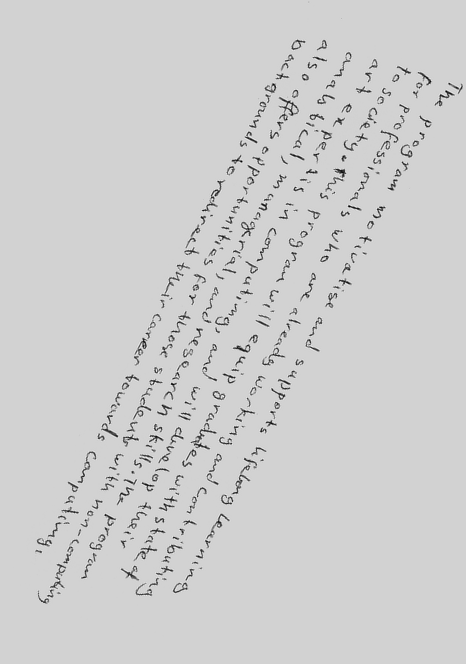 The program motivatise and supports lifelong Learning
for professionals who are already working and contributing
to society. this program will equip gradutes with state of
art expertis in computing, and will develop their
analytical, managerial, and research skills. The program
also offers opportunities for those students with non-computing
backgrounds to redirect their career towards computing,